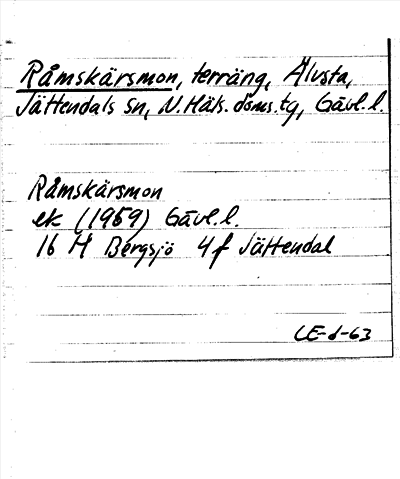 Råmskärsmon, terräng, Älvsta,
Jättendals sn, N. Häls. doms. tg, Gävl. l.
Råmskärsmon
ek (1959) Gävl. l.
16 H Bergsjö 4 f Jättendal
LE-d-63